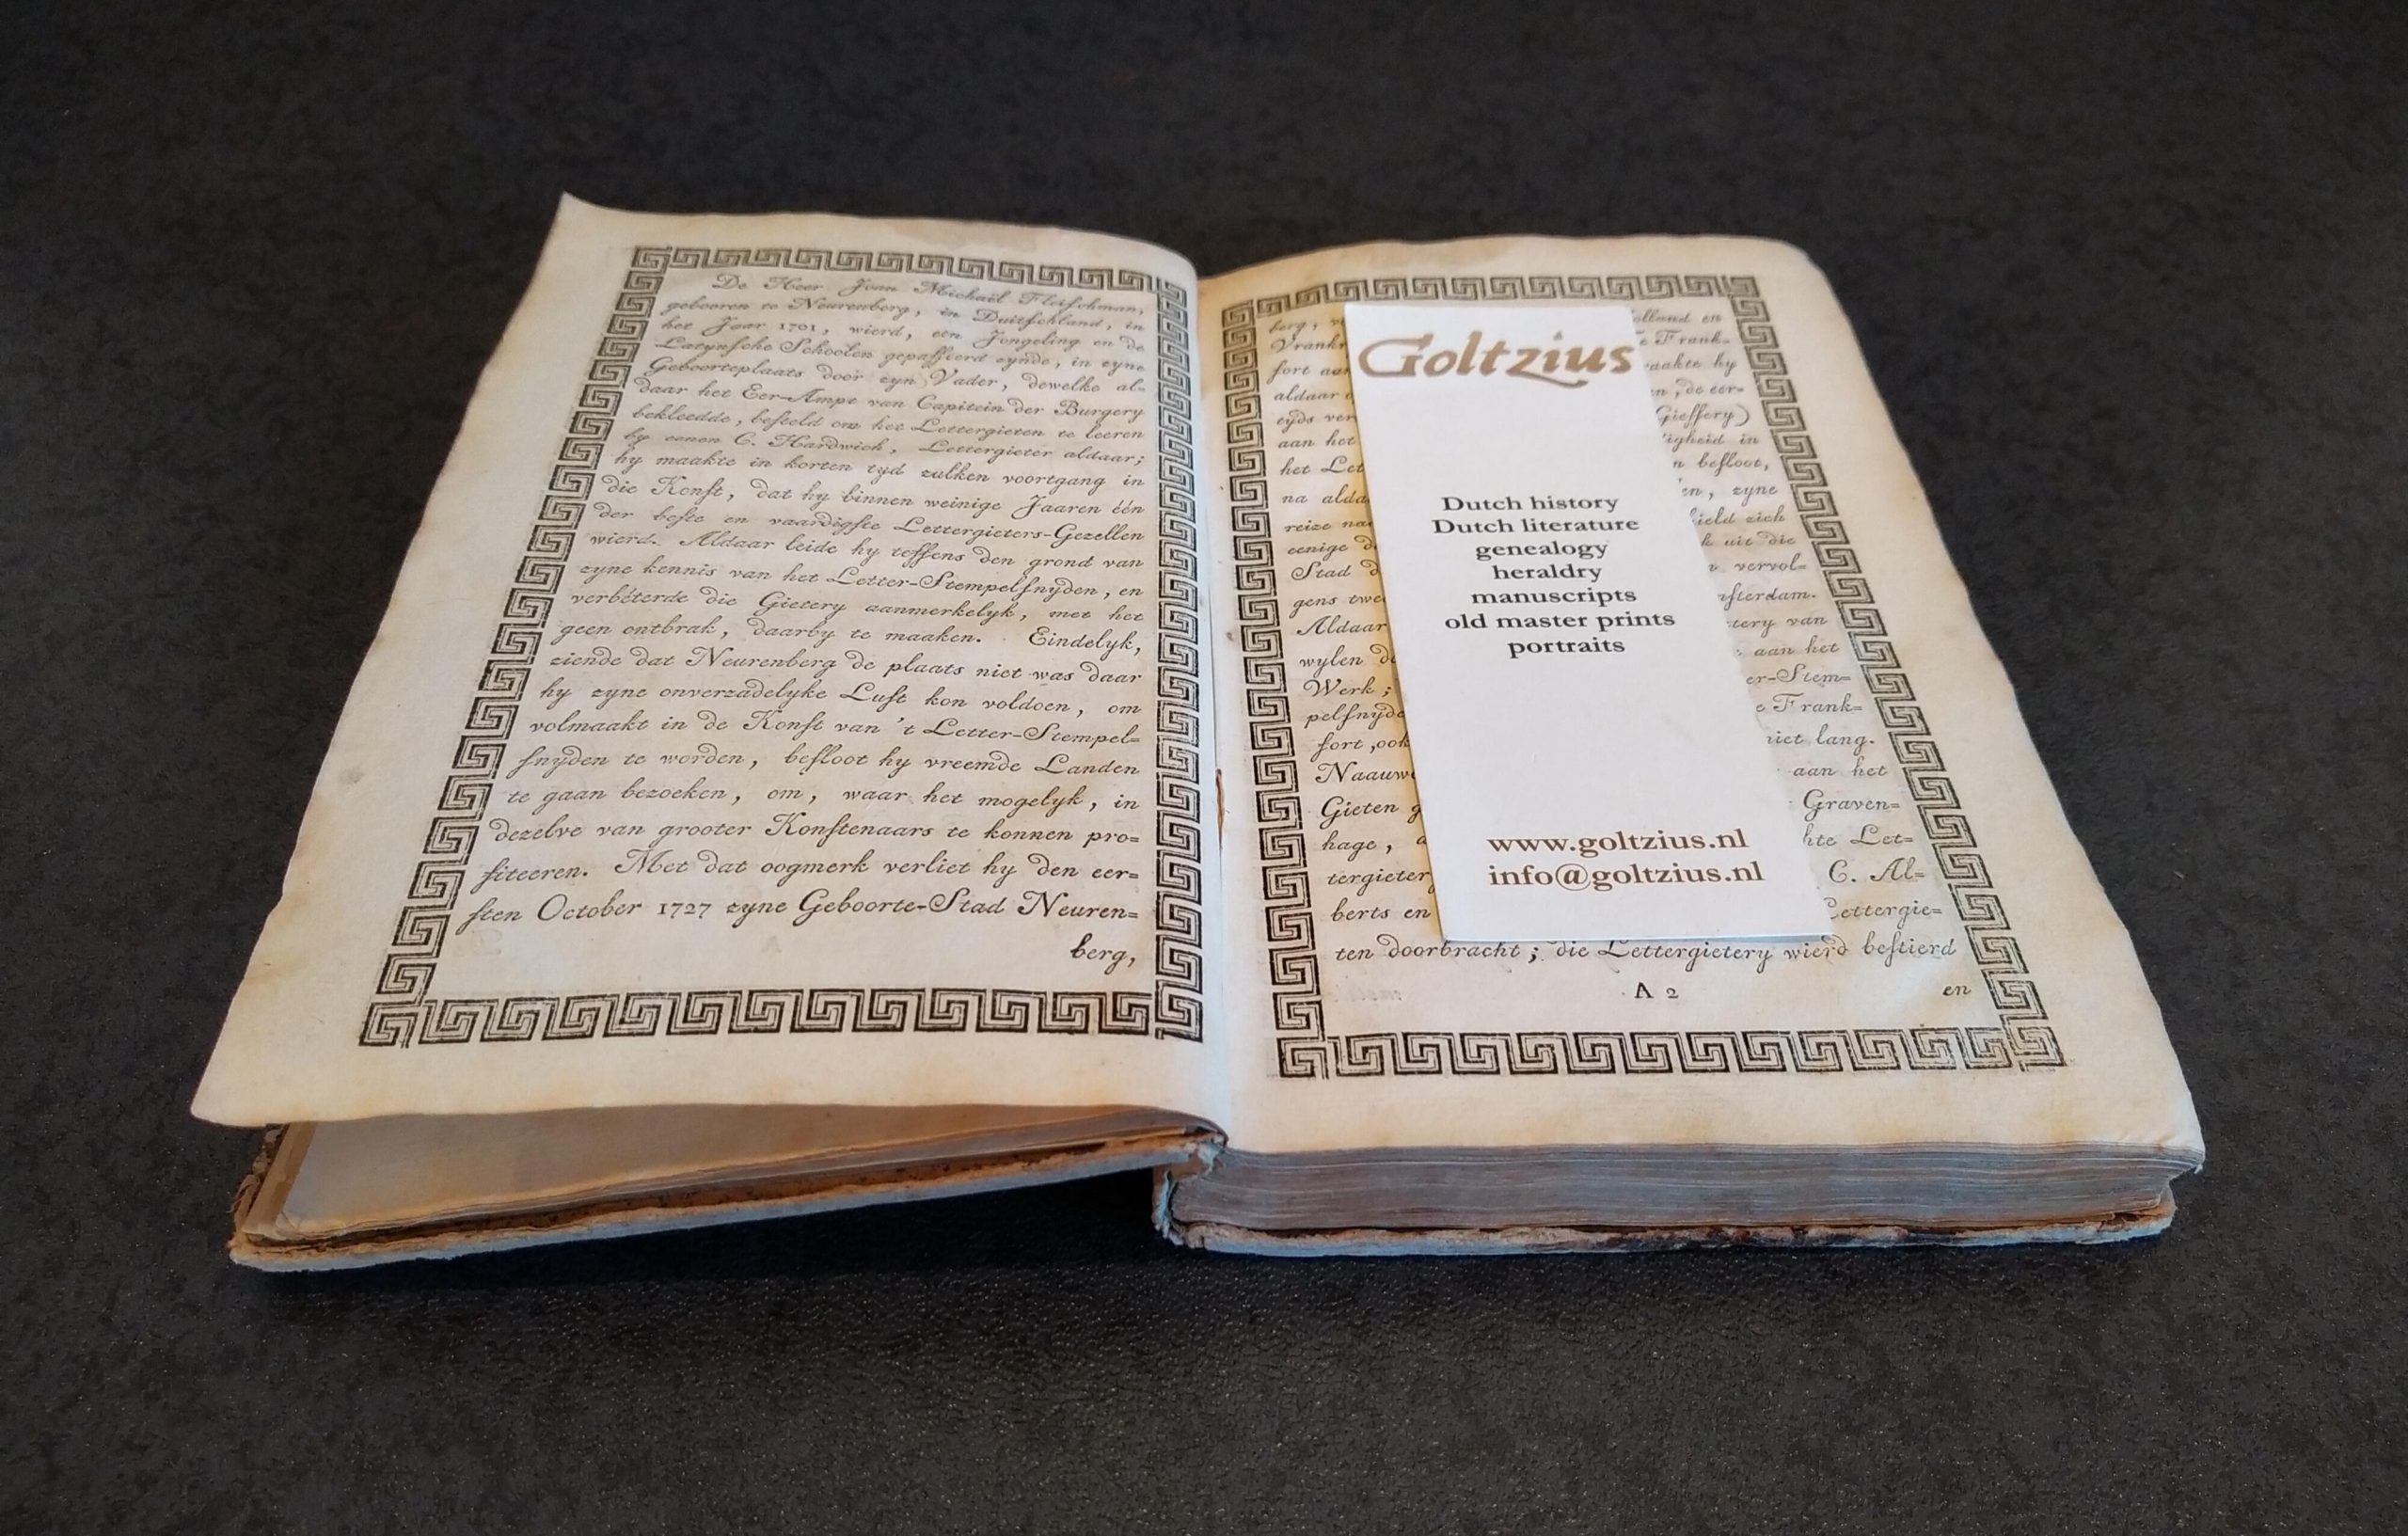 De Heer Joan Michaël Fleischman,
gebooren te Neurenberg, in Duitschland, in
het Jaar 1701, wierd, een Jongeling en de
Latynsche Schoolen gepasseerd zynde, in zyne
Geboorteplaats door zyn Vader, dewelke al-
daar het Eer-Ampt van Capitein der Burgery
bekleedde, besteld om het Lettergieten te leeren
by eenen C. Hardwich, Lettergieter aldaar;
hy maakte in korten tyd zulken voortgang in
die Konst, dat hy binnen weinige Jaaren één
der beste en vaardigste Lettergieters-Gezellen
wierd. Aldaar leide hy teffens den grond van
zyne kennis van het Letter-Stempelsnyden, en
verbéterde die Gietery aanmerkelyk, met het
geen ontbrak, daarby te maaken. Eindelyk,
ziende dat Neurenberg de plaats niet was daar
hy zyne onverzadelyke Lust kon voldoen, om
volmaakt in de Konst van 't Letter-Stempel=
snyden te worden, besloot hy vreemde Landen
te gaan bezoeken, om, waar het mogelyk, in
dezelve van grooter Konstenaars te konnen pro=
fiteeren. Met dat oogmerk verliet hy den eer=
sten October 1727 zyne Geboorte-Stad Neuren=
berg,
berg, olland en
Vrankr Frank=
fort aan aakte hy
aldaar de eer=
tyds ver Gieffery)
aan het igheid in
het Let besloot,
na alda en, zyne
reize na ield zich
eenige d k uit die
Stad d vervol=
gens twe sterdam.
Aldaar tery van
wylen de aan het
Werk; er-Stem=
pelsnyde e Frank=
fort, ook niet lang.
Naauw aan het
Gieten g Graven=
hage, hte Let=
tergieter C. Al=
berts en Lettergie=
ten doorbracht; die Lettergietery wierd bestierd
A 2
en
Goltzius
Dutch history
Dutch literature
genealogy
heraldry
manuscripts
old master prints
portraits
www.goltzius.nl
info@goltzius.nl